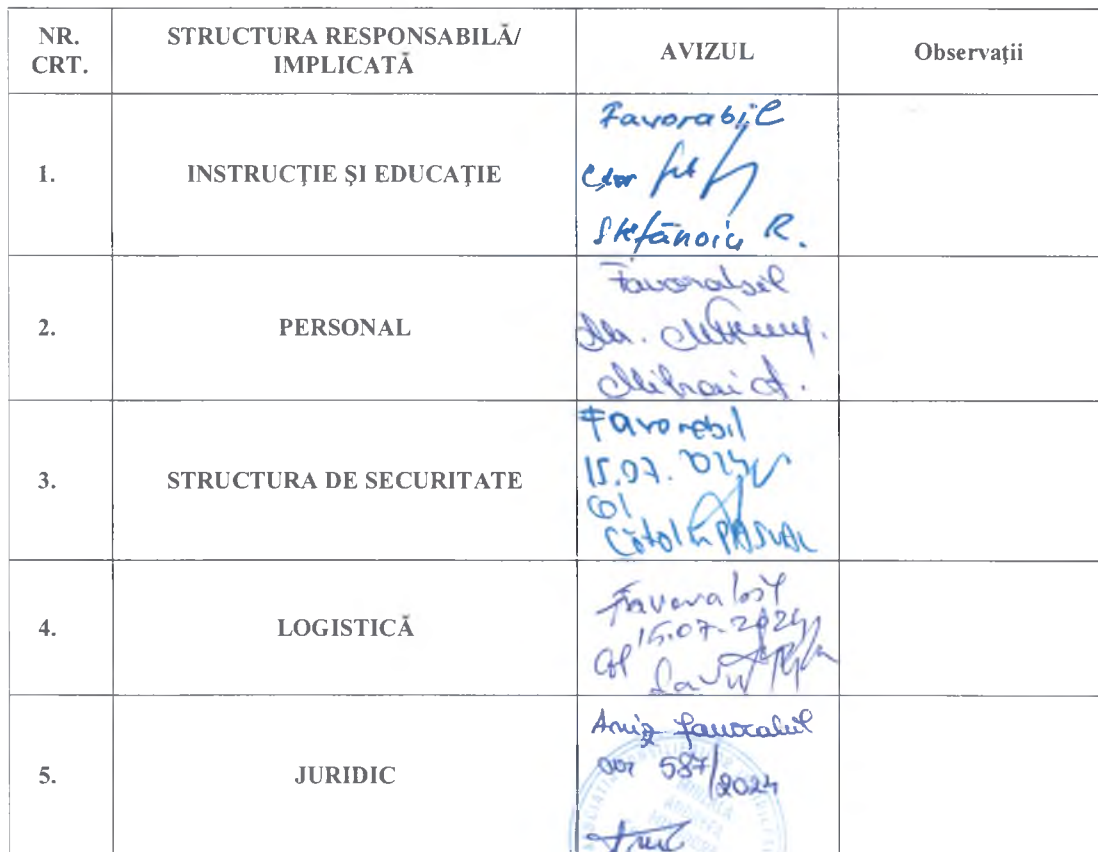 NR. CRT. STRUCTURA RESPONSABILĂ/ IMPLICATĂ AVIZUL Observații
1. INSTRUCȚIE ȘI EDUCAȚIE
Favorabil
Cdor
Ștefănoiu R.
2. PERSONAL
Favorabil
Mihai A.
3. STRUCTURA DE SECURITATE
Favorabil
15.07.2024
Col
Cătălin PASCAL
4. LOGISTICĂ
Favorabil
15.07.2024
Col
5. JURIDIC
Aviz favorabil
587/2024